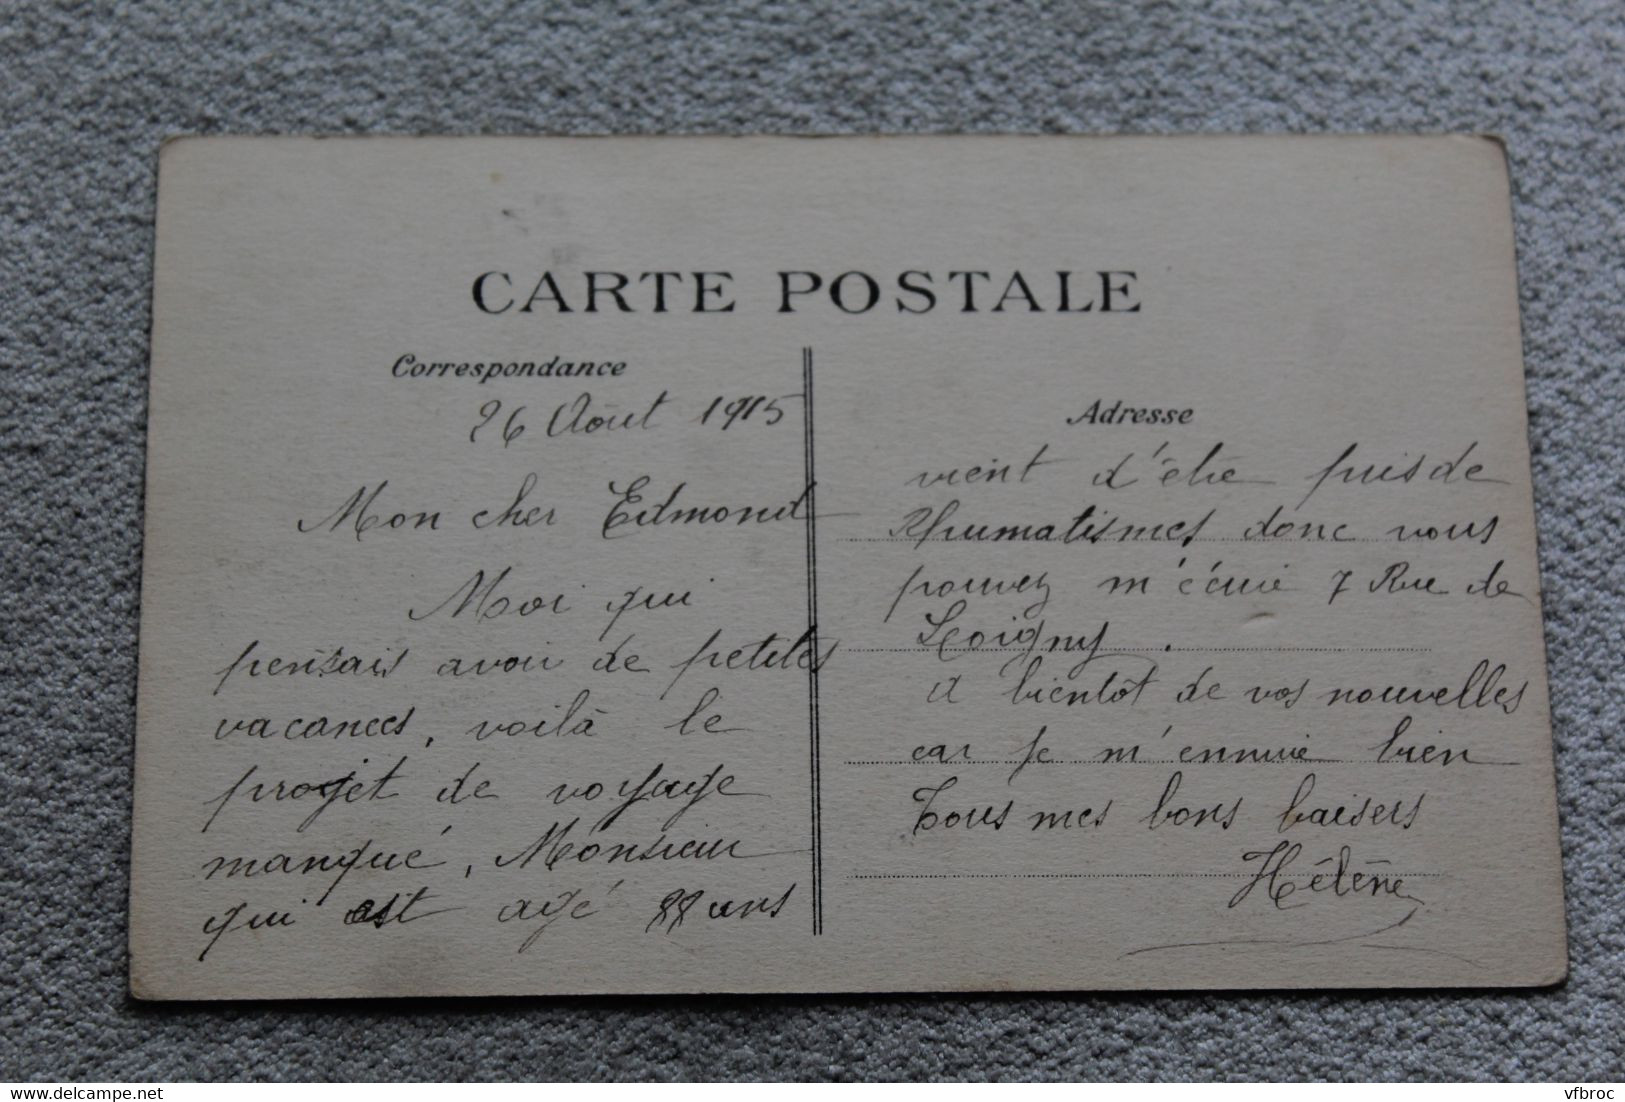 CARTE POSTALE
Correspondance
26 Août 1915
Mon cher Edmond
Moi qui
pensais avoir de petites
vacances, voilà le
projet de voyage
manqué, Monsieur
qui est agé 88 ans
Adresse
vient d'être pris de
Rhumatismes donc vous
pouvez m'écrire 7 Rue de
Loigny.
A bientôt de vos nouvelles
car je m'ennuie bien
Tous mes bons baisers
Hélène
delcampe.net
vfbroc